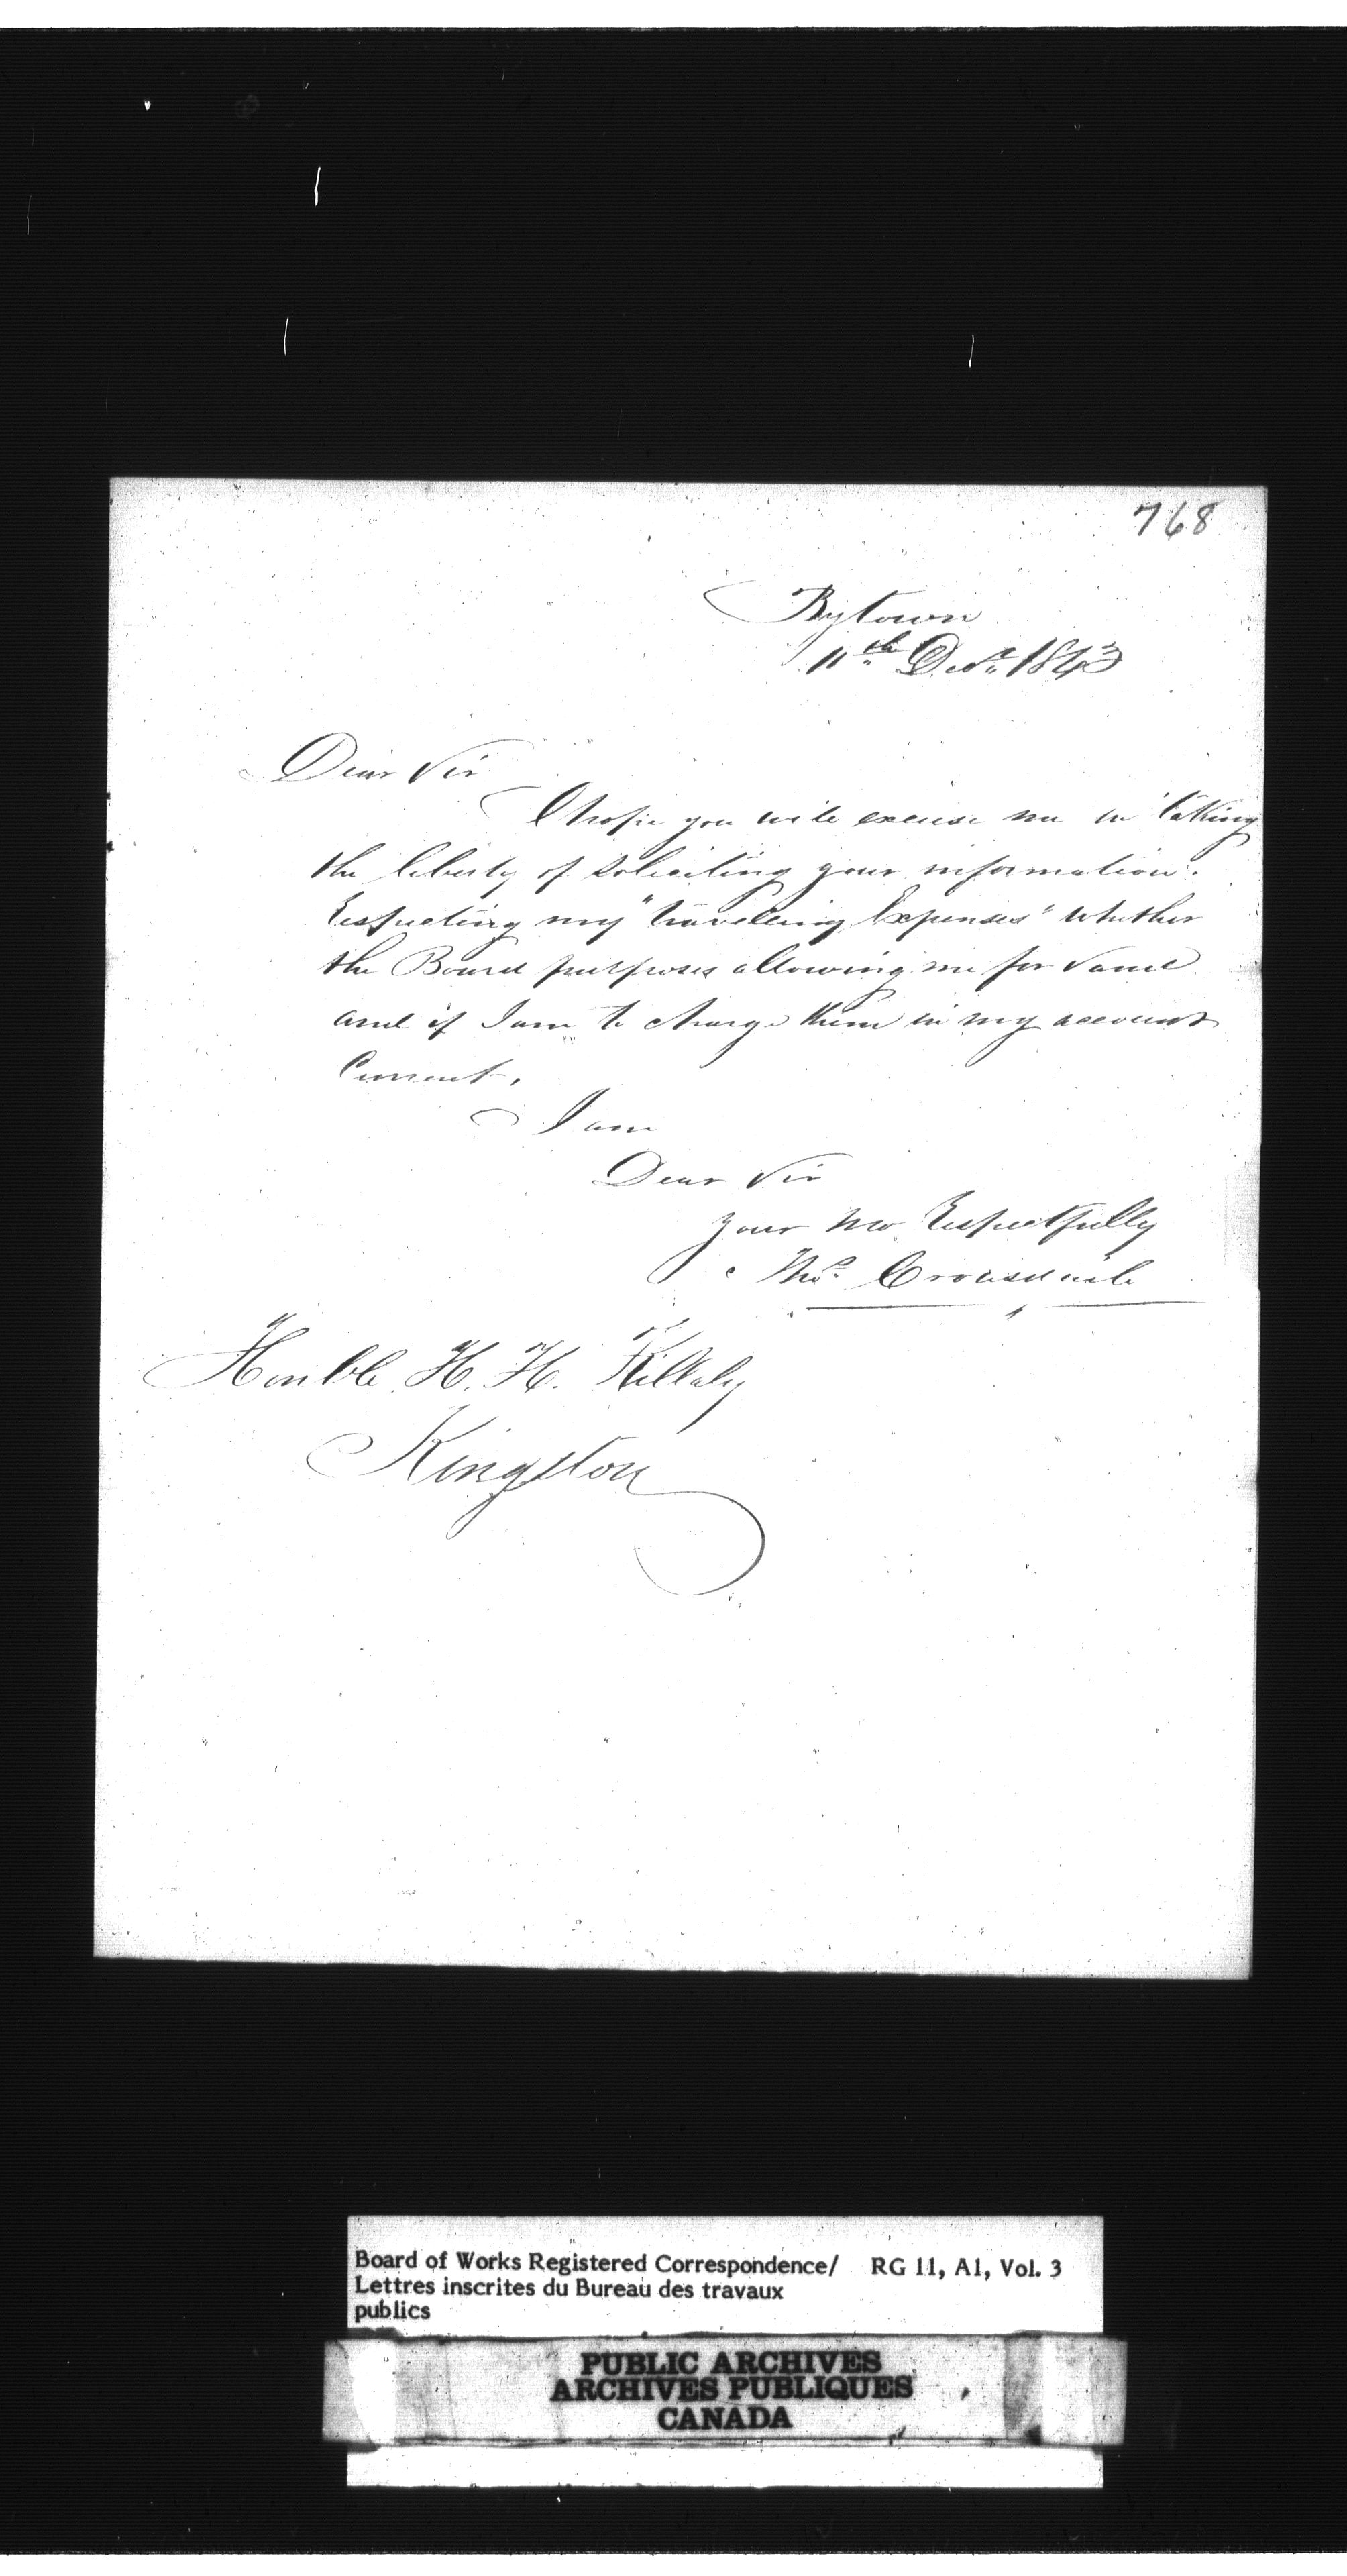 768
Bytown
11th Decr. 1843
Dear Sir
I hope you will excuse me in taking
the liberty of soliciting your information.
Respecting my "travelling Expenses" whether
the Board purposes allowing me for Same
and if I am to charge them in my account
Current.
I am
Dear Sir
Your Mo Respectfully
Thos. Crousdaile
Honble. H. H. Killaly
Kingston
Board of Works Registered Correspondence/ RG 11, A1, Vol. 3
Lettres inscrites du Bureau des travaux
publics
PUBLIC ARCHIVES
ARCHIVES PUBLIQUES
CANADA